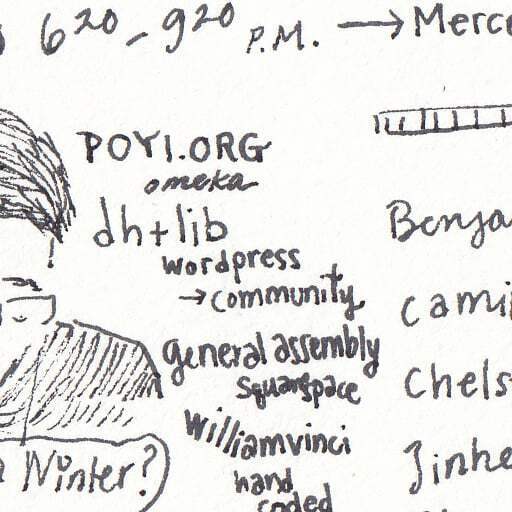 6²⁰ - 9²⁰ P.M. → Merce
POYI.ORG
omeka
dh+lib
wordpress
→ community
general assembly
squarespace
williamvinci
hand
coded
Winter?
Benja
Cami
Chels
Jinhe